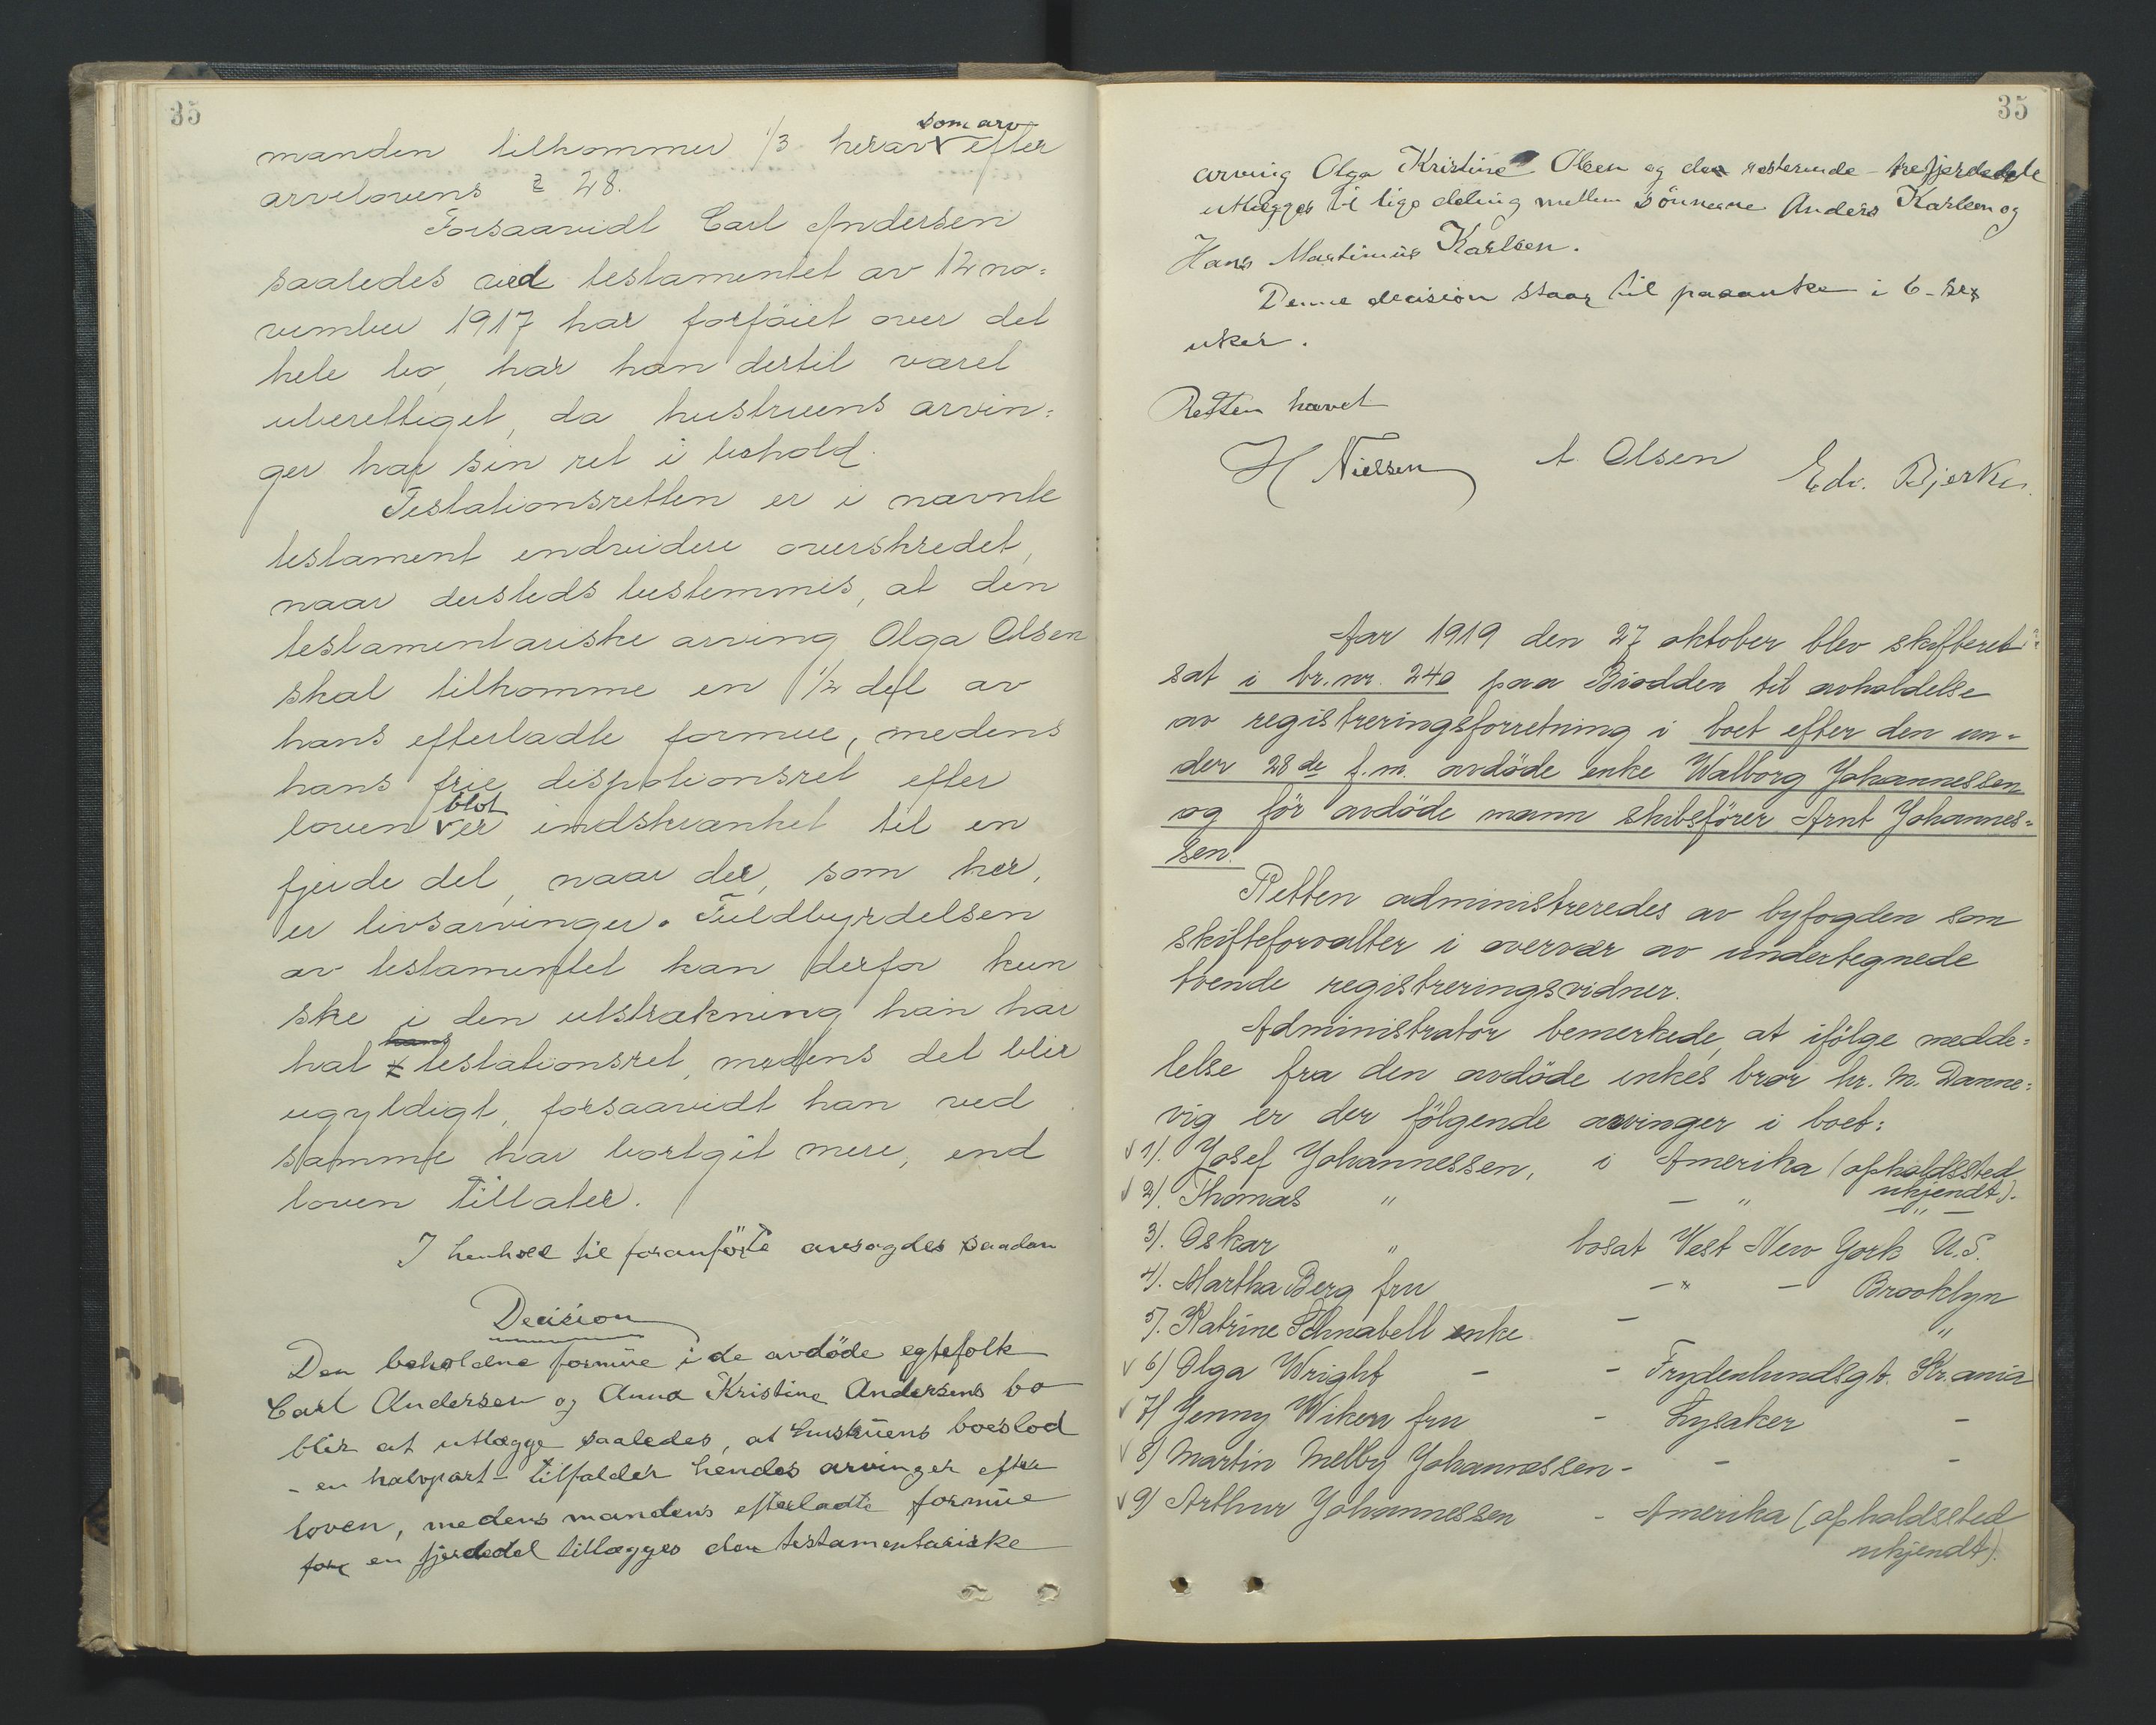 35
manden tilkommer 1/3 herav som arv efter
arvelovens § 28.
Forsaavidt Carl Andersen
saaledes ved testamentet av 12 no-
vember 1917 har forføiet over det
hele bo, har han dertil været
uberettiget, da hustruens arvin-
ger har sin ret i behold.
Testationsretten er i nævnte
testament endvidere overskredet,
naar dersteds bestemmes, at den
testamentariske arving Olga Olsen
skal tilkomme en 1/2 del av
hans efterladte formue, medens
hans frie dispotionsret efter
loven blot er indskrænket til en
fjerde del, naar der, som her,
er livsarvinger. Fuldbyrdelsen
av testamentet kan derfor kun
ske i den utstrækning han har
hat testationsret, medens det blir
ugyldigt, forsaavidt han ved
samme har bortgit mere, end
loven tillater.
I henhold til foranførte avsagdes saadan
Decision
Den beholdne formue i de avdøde egtefolk
Carl Andersen og Anna Kristine Andersens bo
blir at utlægge saaledes, at hustruens boeslod
- en halvpart - tilfalder hendes arvinger efter
loven, medens mandens efterladte formue
for en fjerdedel tillægges den testamentariske
35
arving Olga Kristine Olsen og den resterende trefjerdedele
utlægges til lige deling mellem sønnerne Anders Karlsen og
Hans Martinius Karlsen.
Denne decision staar til paaanke i 6 - sex
uker.
Retten hævet
H Nielsen A. Olsen Edv. Bjerke.
Aar 1919 den 27 oktober blev skifteret
sat i br. nr. 240 paa Brodden til avholdelse
av registreringsforretning i boet efter den un-
der 28de f. m. avdøde enke Walborg Johannessen
og før avdøde mann skibsfører Arnt Johannes-
sen.
Retten administreredes av byfogden som
skifteforvalter i overvær av undertegnede
tvende registreringsvidner.
Administrator bemerkede, at ifølge medde-
lelse fra den avdøde enkes bror hr. M. Danne-
vig er der følgende arvinger i boet:
1). Josef Johannessen, i Amerika (opholdssted
ukjendt).
2). Thomas " - " - " -
3). Oskar " bosat West New York U.S.
4). Martha Berg fru - " - Brooklyn
5). Katrine Schnabell enke - "
6) Olga Wright - - Frydenlundsgt. Kr.ania
7) Jenny Wiken fru - Lysaker -
8) Martin Melby Johannessen - - -
9) Arthur Johannessen - Amerika (opholdssted
ukjendt).